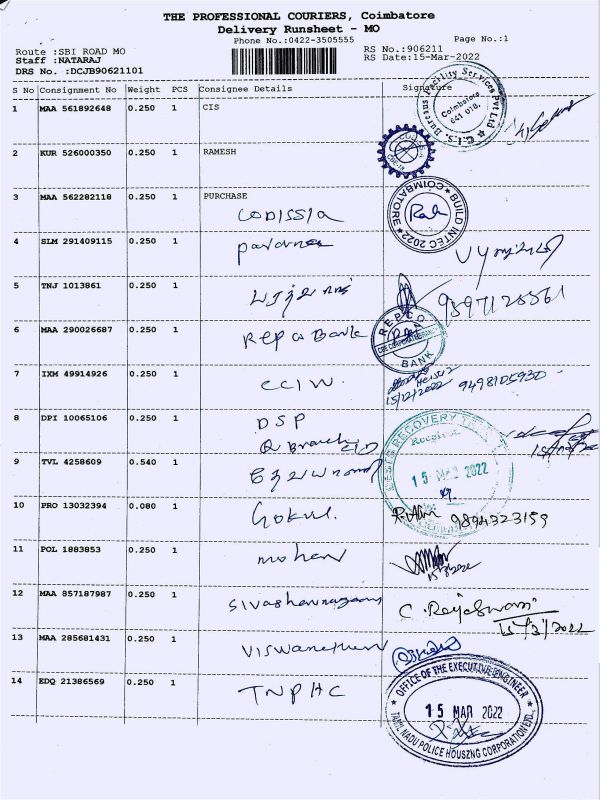 THE PROFESSIONAL COURIERS, Coimbatore
Delivery Runsheet - MO
Phone No.:0422-3505555
Page No.:1
Route :SBI ROAD MO
Staff :NATARAJ
DRS No. :DCJB90621101
RS No.:906211
RS Date:15-Mar-2022
S No Consignment No Weight PCS Consignee Details Signature
1 MAA 561892648 0.250 1 CIS
Coimbatore 641 018.
2 KUR 526000350 0.250 1 RAMESH
3 MAA 562282118 0.250 1 PURCHASE
CODISSIA
BUILD INTEC 2022 COIMBATORE
4 SLM 291409115 0.250 1
5 TNJ 1013861 0.250 1
9397128561
6 MAA 290026687 0.250 1 Repco Bank
REPCO BANK
7 IXM 49914926 0.250 1 CCIW.
15/12/2022 9498105930
8 DPI 10065106 0.250 1 DSP
Q Branch CID
9 TVL 4258609 0.540 1
Received
15 MAR 2022
10 PRO 13032394 0.080 1 Gokul.
9894323159
11 POL 1883853 0.250 1 mohan
12 MAA 857187987 0.250 1
C. Rajeswari
15/3/2022
13 MAA 285681431 0.250 1 Viswanathan
14 EDQ 21386569 0.250 1 TNPHC
OFFICE OF THE EXECUTIVE ENGINEER
15 MAR 2022
TAMIL NADU POLICE HOUSING CORPORATION LTD.